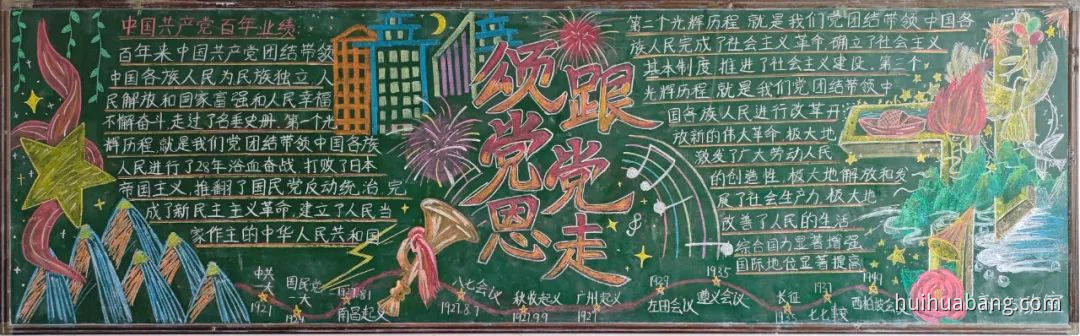 中国共产党百年业绩:
百年来中国共产党团结带领
中国各族人民为民族独立,人
民解放和国家富强和人民幸福
不懈奋斗,走过了名垂史册.第一个光
辉历程,就是我们党团结带领中国各族
人民进行了28年浴血奋战,打败了日本
帝国主义,推翻了国民党反动统治,完
成了新民主主义革命,建立了人民当
家作主的中华人民共和国
颂党恩
跟党走
第二个光辉历程 就是我们党团结带领中国各
族人民完成了社会主义革命,确立了社会主义
基本制度,推进了社会主义建设.第三个
光辉历程 就是我们党团结带领中
国各族人民进行改革开
放新的伟大革命,极大地
激发了广大劳动人民
的创造性,极大地解放和发
展了社会生产力,极大地
改善了人民的生活
综合国力显著增强
国际地位显著提高
中共
一大
1921
国民党
一大
1924
1927.8.1
南昌起义
八七会议
1927.8.7
秋收起义
1927.9.9
广州起义
1927
1929
古田会议
1935
遵义会议
长征
1937
七七事变
1949
西柏坡会议
huihuabang.com